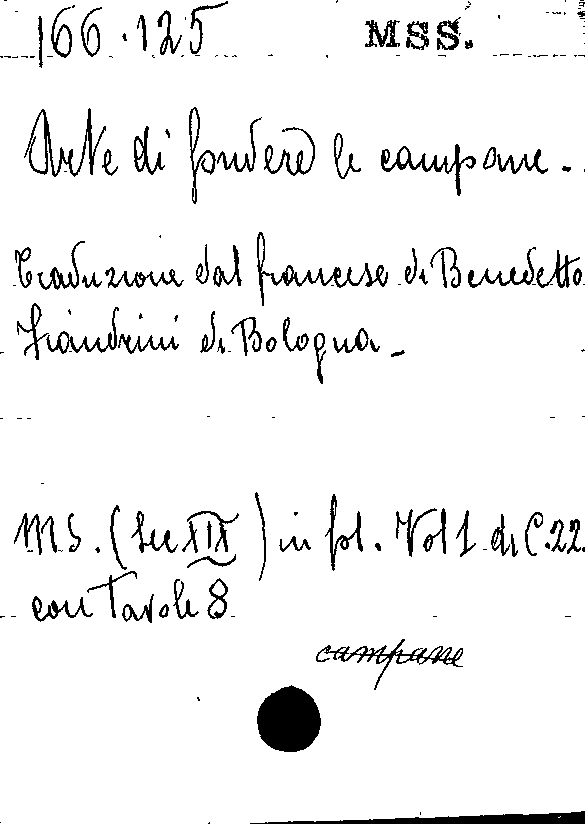 166.125 MSS.
Arte di fondere le campane.
Traduzione dal francese di Benedetto
di Bologna.
MS. (Sec XIX) in fol. Vol 1 di C. 22.
con Tavole 8
campane